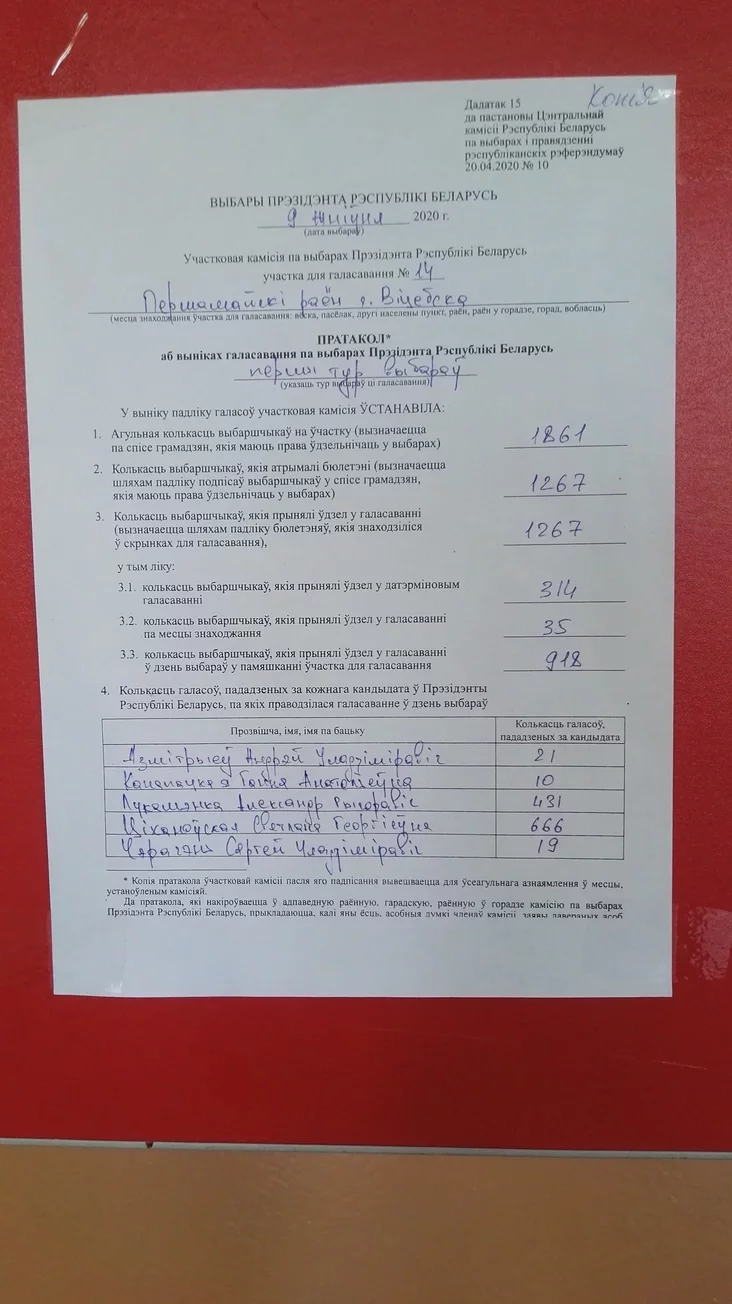 Копія
Далатак 15
да пастановы Цэнтральнай
камісіі Рэспублікі Беларусь
па выбарах і правядзенні
рэспубліканскіх рэферэндумаў
20.04.2020 № 10
ВЫБАРЫ ПРЭЗІДЭНТА РЭСПУБЛІКІ БЕЛАРУСЬ
9 жніўня 2020 г.
(дата выбараў)
Участковая камісія па выбарах Прэзідэнта Рэспублікі Беларусь
участка для галасавання № 14
Першамайскі раён г. Віцебска
(месца знаходжання ўчастка для галасавання: вёска, пасёлак, другі населены пункт, раён, раён у горадзе, горад, вобласць)
ПРАТАКОЛ*
аб выніках галасавання па выбарах Прэзідэнта Рэспублікі Беларусь
першы тур выбараў
(указаць тур выбараў ці галасавання)
У выніку падліку галасоў участковая камісія ЎСТАНАВІЛА:
1. Агульная колькасць выбаршчыкаў на ўчастку (вызначаецца
па спісе грамадзян, якія маюць права ўдзельнічаць у выбарах) 1861
2. Колькасць выбаршчыкаў, якія атрымалі бюлетэні (вызначаецца
шляхам падліку подпісаў выбаршчыкаў у спісе грамадзян,
якія маюць права ўдзельнічаць у выбарах) 1267
3. Колькасць выбаршчыкаў, якія прынялі ўдзел у галасаванні
(вызначаецца шляхам падліку бюлетэняў, якія знаходзіліся
ў скрынках для галасавання), 1267
у тым ліку:
3.1. колькасць выбаршчыкаў, якія прынялі ўдзел у датэрміновым
галасаванні 314
3.2. колькасць выбаршчыкаў, якія прынялі ўдзел у галасаванні
па месцы знаходжання 35
3.3. колькасць выбаршчыкаў, якія прынялі ўдзел у галасаванні
ў дзень выбараў у памяшканні ўчастка для галасавання 918
4. Колькасць галасоў, пададзеных за кожнага кандыдата ў Прэзідэнты
Рэспублікі Беларусь, па якіх праводзілася галасаванне ў дзень выбараў
Прозвішча, імя, імя па бацьку Колькасць галасоў, пададзеных за кандыдата
Дзмітрыеў Андрэй Уладзіміравіч 21
Канапацкая Ганна Анатольеўна 10
Лукашэнка Аляксандр Рыгоравіч 431
Ціханоўская Святлана Георгіеўна 666
Чэрачэнь Сяргей Уладзіміравіч 19
* Копія пратакола ўчастковай камісіі пасля яго падпісання вывешваецца для ўсеагульнага азнаямлення ў месцы,
устаноўленым камісіяй.
Да пратакола, які накіроўваецца ў адпаведную раённую, гарадскую, раённую ў горадзе камісію па выбарах
Прэзідэнта Рэспублікі Беларусь, прыкладаюцца, калі яны ёсць, асобныя думкі членаў камісіі, заявы давераных асоб